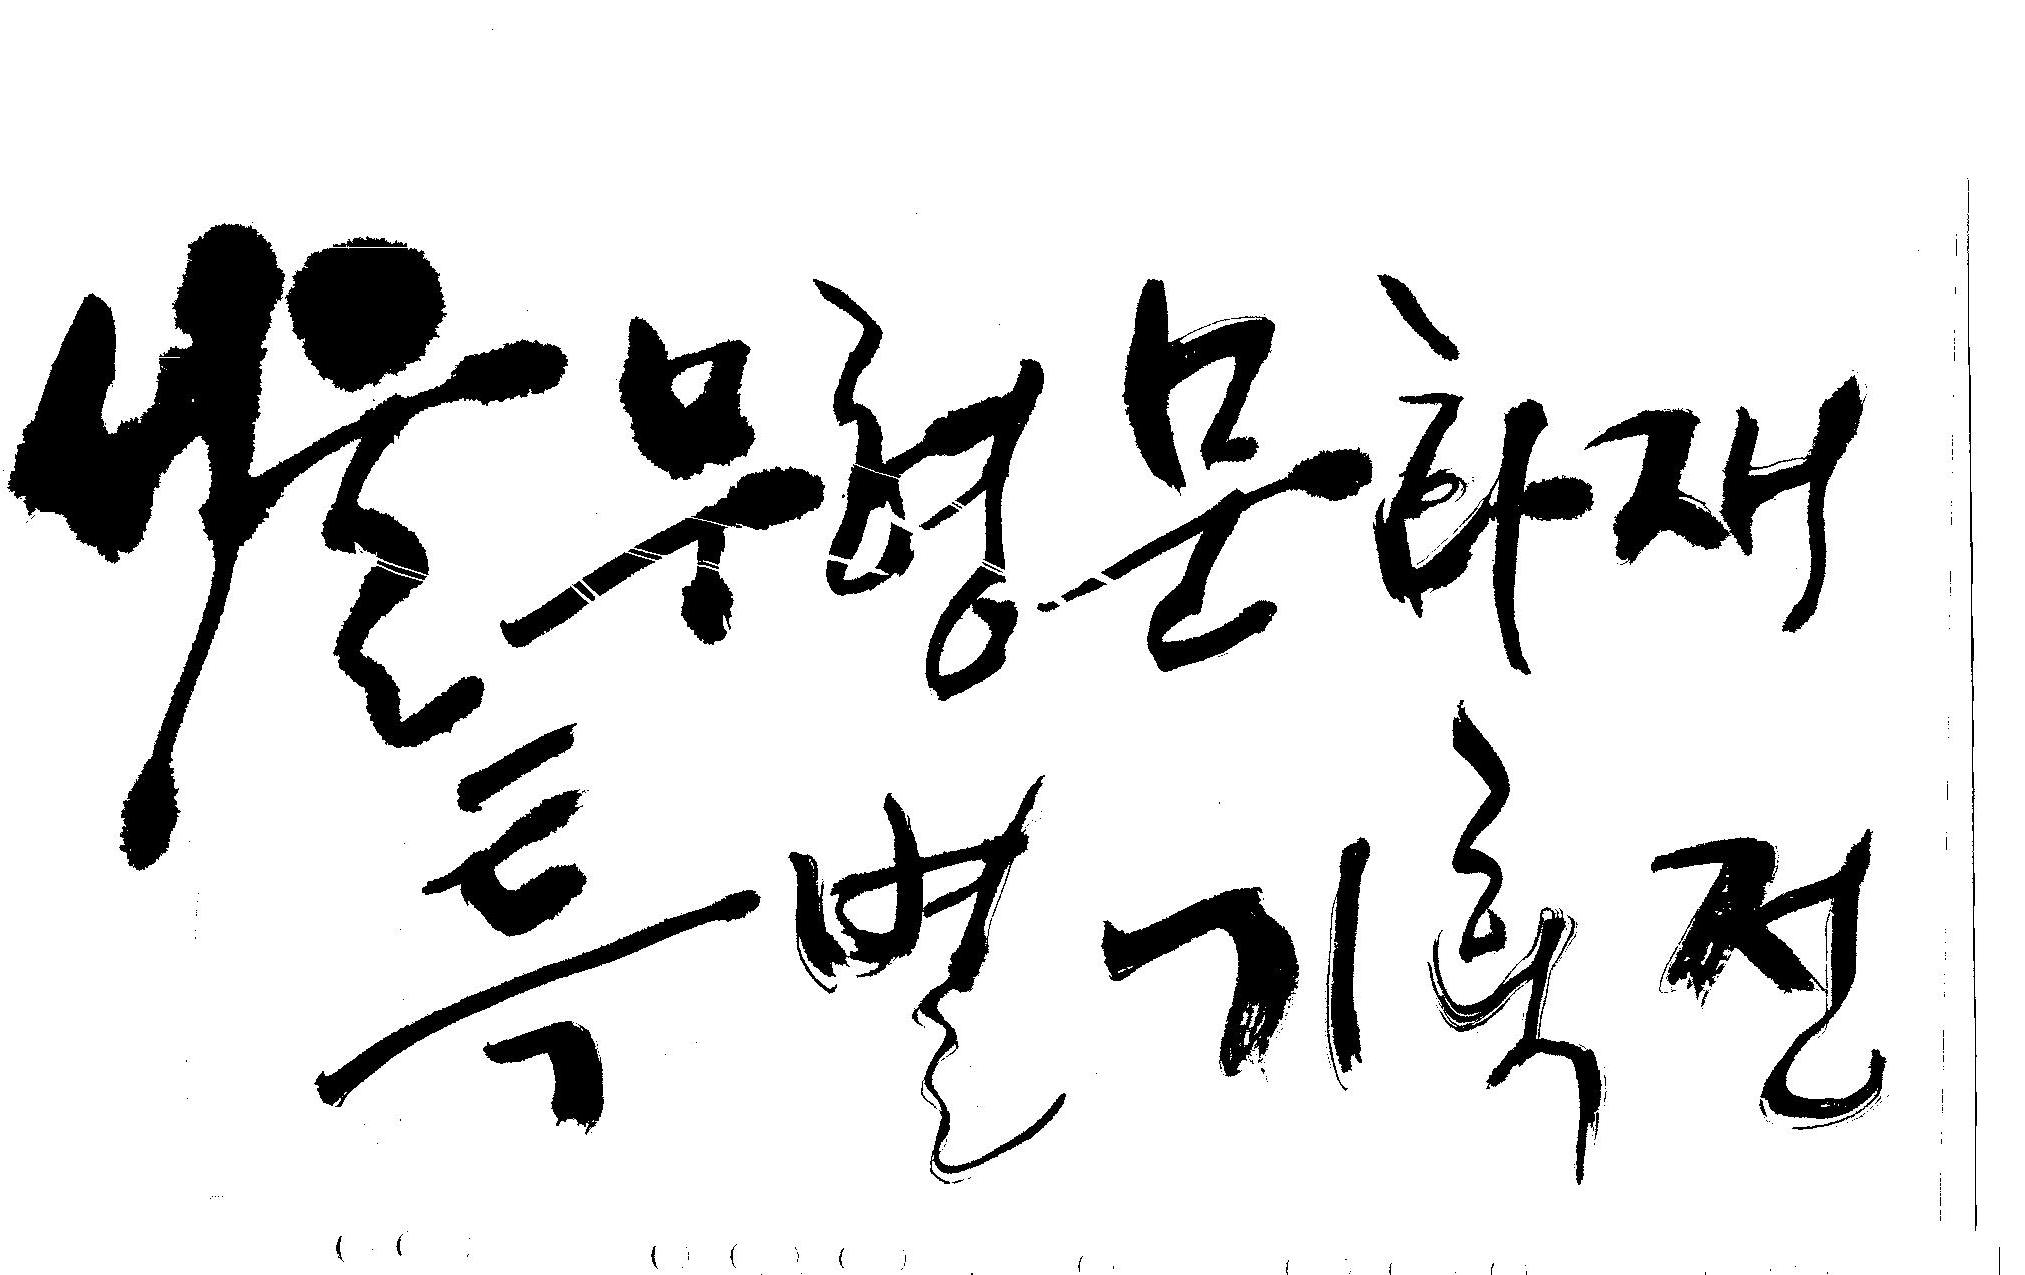 서울무형문화재
특별기획전